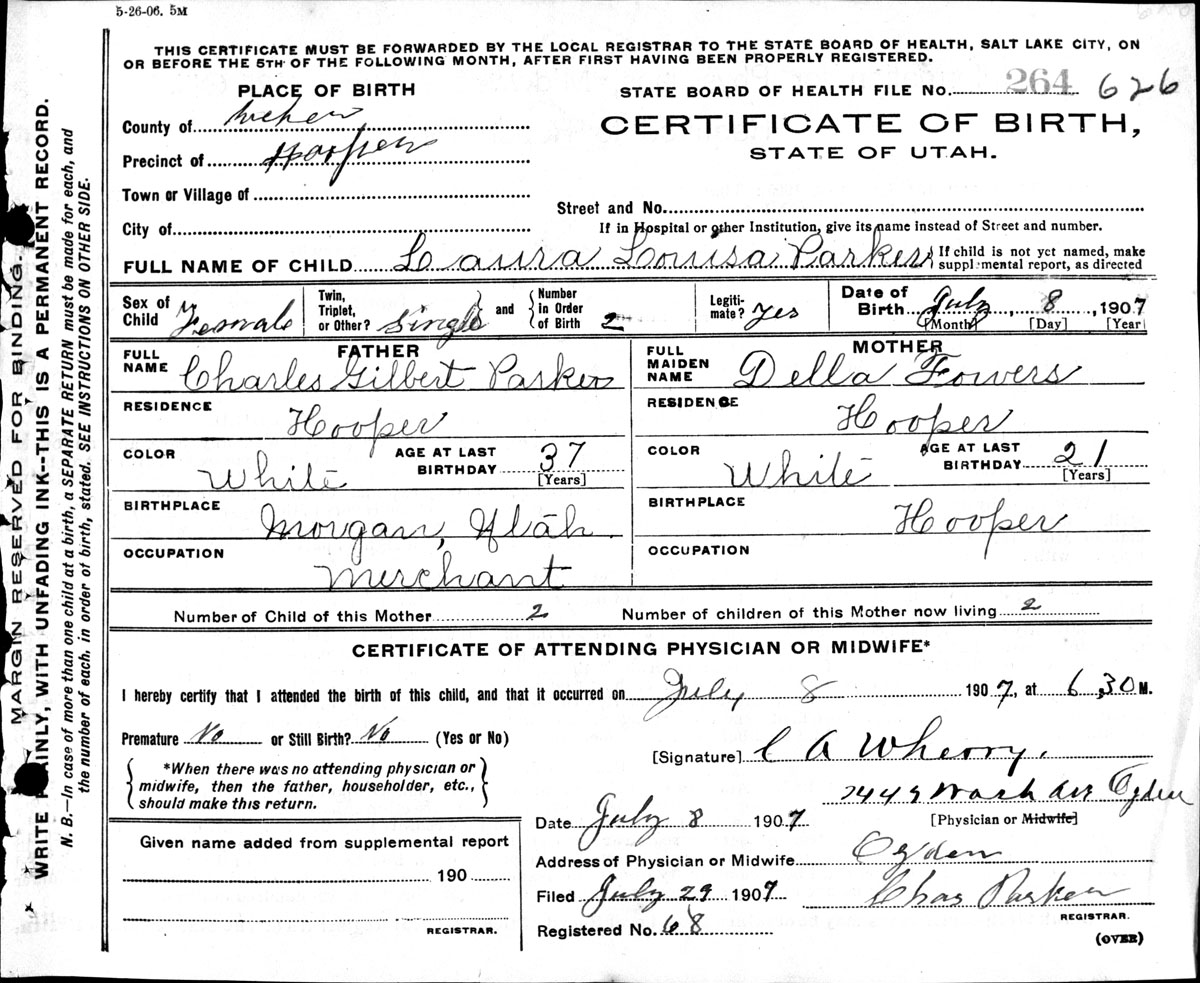 5-26-06. 5M
THIS CERTIFICATE MUST BE FORWARDED BY THE LOCAL REGISTRAR TO THE STATE BOARD OF HEALTH, SALT LAKE CITY, ON
OR BEFORE THE 5TH OF THE FOLLOWING MONTH, AFTER FIRST HAVING BEEN PROPERLY REGISTERED.
PLACE OF BIRTH
STATE BOARD OF HEALTH FILE No. 264 626
County of Weber
CERTIFICATE OF BIRTH,
Precinct of Hooper
STATE OF UTAH.
Town or Village of
Street and No.
City of
If in Hospital or other Institution, give its name instead of Street and number.
FULL NAME OF CHILD Laura Louisa Parker
If child is not yet named, make
supplemental report, as directed
Sex of Child Female
Twin, Triplet, or Other? Single and Number in Order of Birth 2
Legiti-mate? Yes
Date of Birth July 8, 1907
[Month] [Day] [Year]
FATHER
FULL NAME Charles Gilbert Parker
MOTHER
FULL MAIDEN NAME Della Fowers
RESIDENCE Hooper
RESIDENCE Hooper
COLOR White AGE AT LAST BIRTHDAY 37 [Years]
COLOR White AGE AT LAST BIRTHDAY 21 [Years]
BIRTHPLACE Morgan, Utah.
BIRTHPLACE Hooper
OCCUPATION Merchant
OCCUPATION
Number of Child of this Mother 2 Number of children of this Mother now living 2
CERTIFICATE OF ATTENDING PHYSICIAN OR MIDWIFE*
I hereby certify that I attended the birth of this child, and that it occurred on July 8 1907, at 6.30 M.
Premature No or Still Birth? No (Yes or No)
[Signature] C A Wherry.
*When there was no attending physician or
midwife, then the father, householder, etc.,
should make this return.
2449 Wash Ave Ogden
Date July 8 1907
[Physician or Midwife]
Given name added from supplemental report
190
REGISTRAR.
Address of Physician or Midwife Ogden
Filed July 29 1907 Chas Parker
REGISTRAR.
Registered No. 68
(OVER)
MARGIN RESERVED FOR BINDING.
WRITE PLAINLY, WITH UNFADING INK--THIS IS A PERMANENT RECORD.
N. B.—In case of more than one child at a birth, a SEPARATE RETURN must be made for each, and
the number of each, in order of birth, stated. SEE INSTRUCTIONS ON OTHER SIDE.